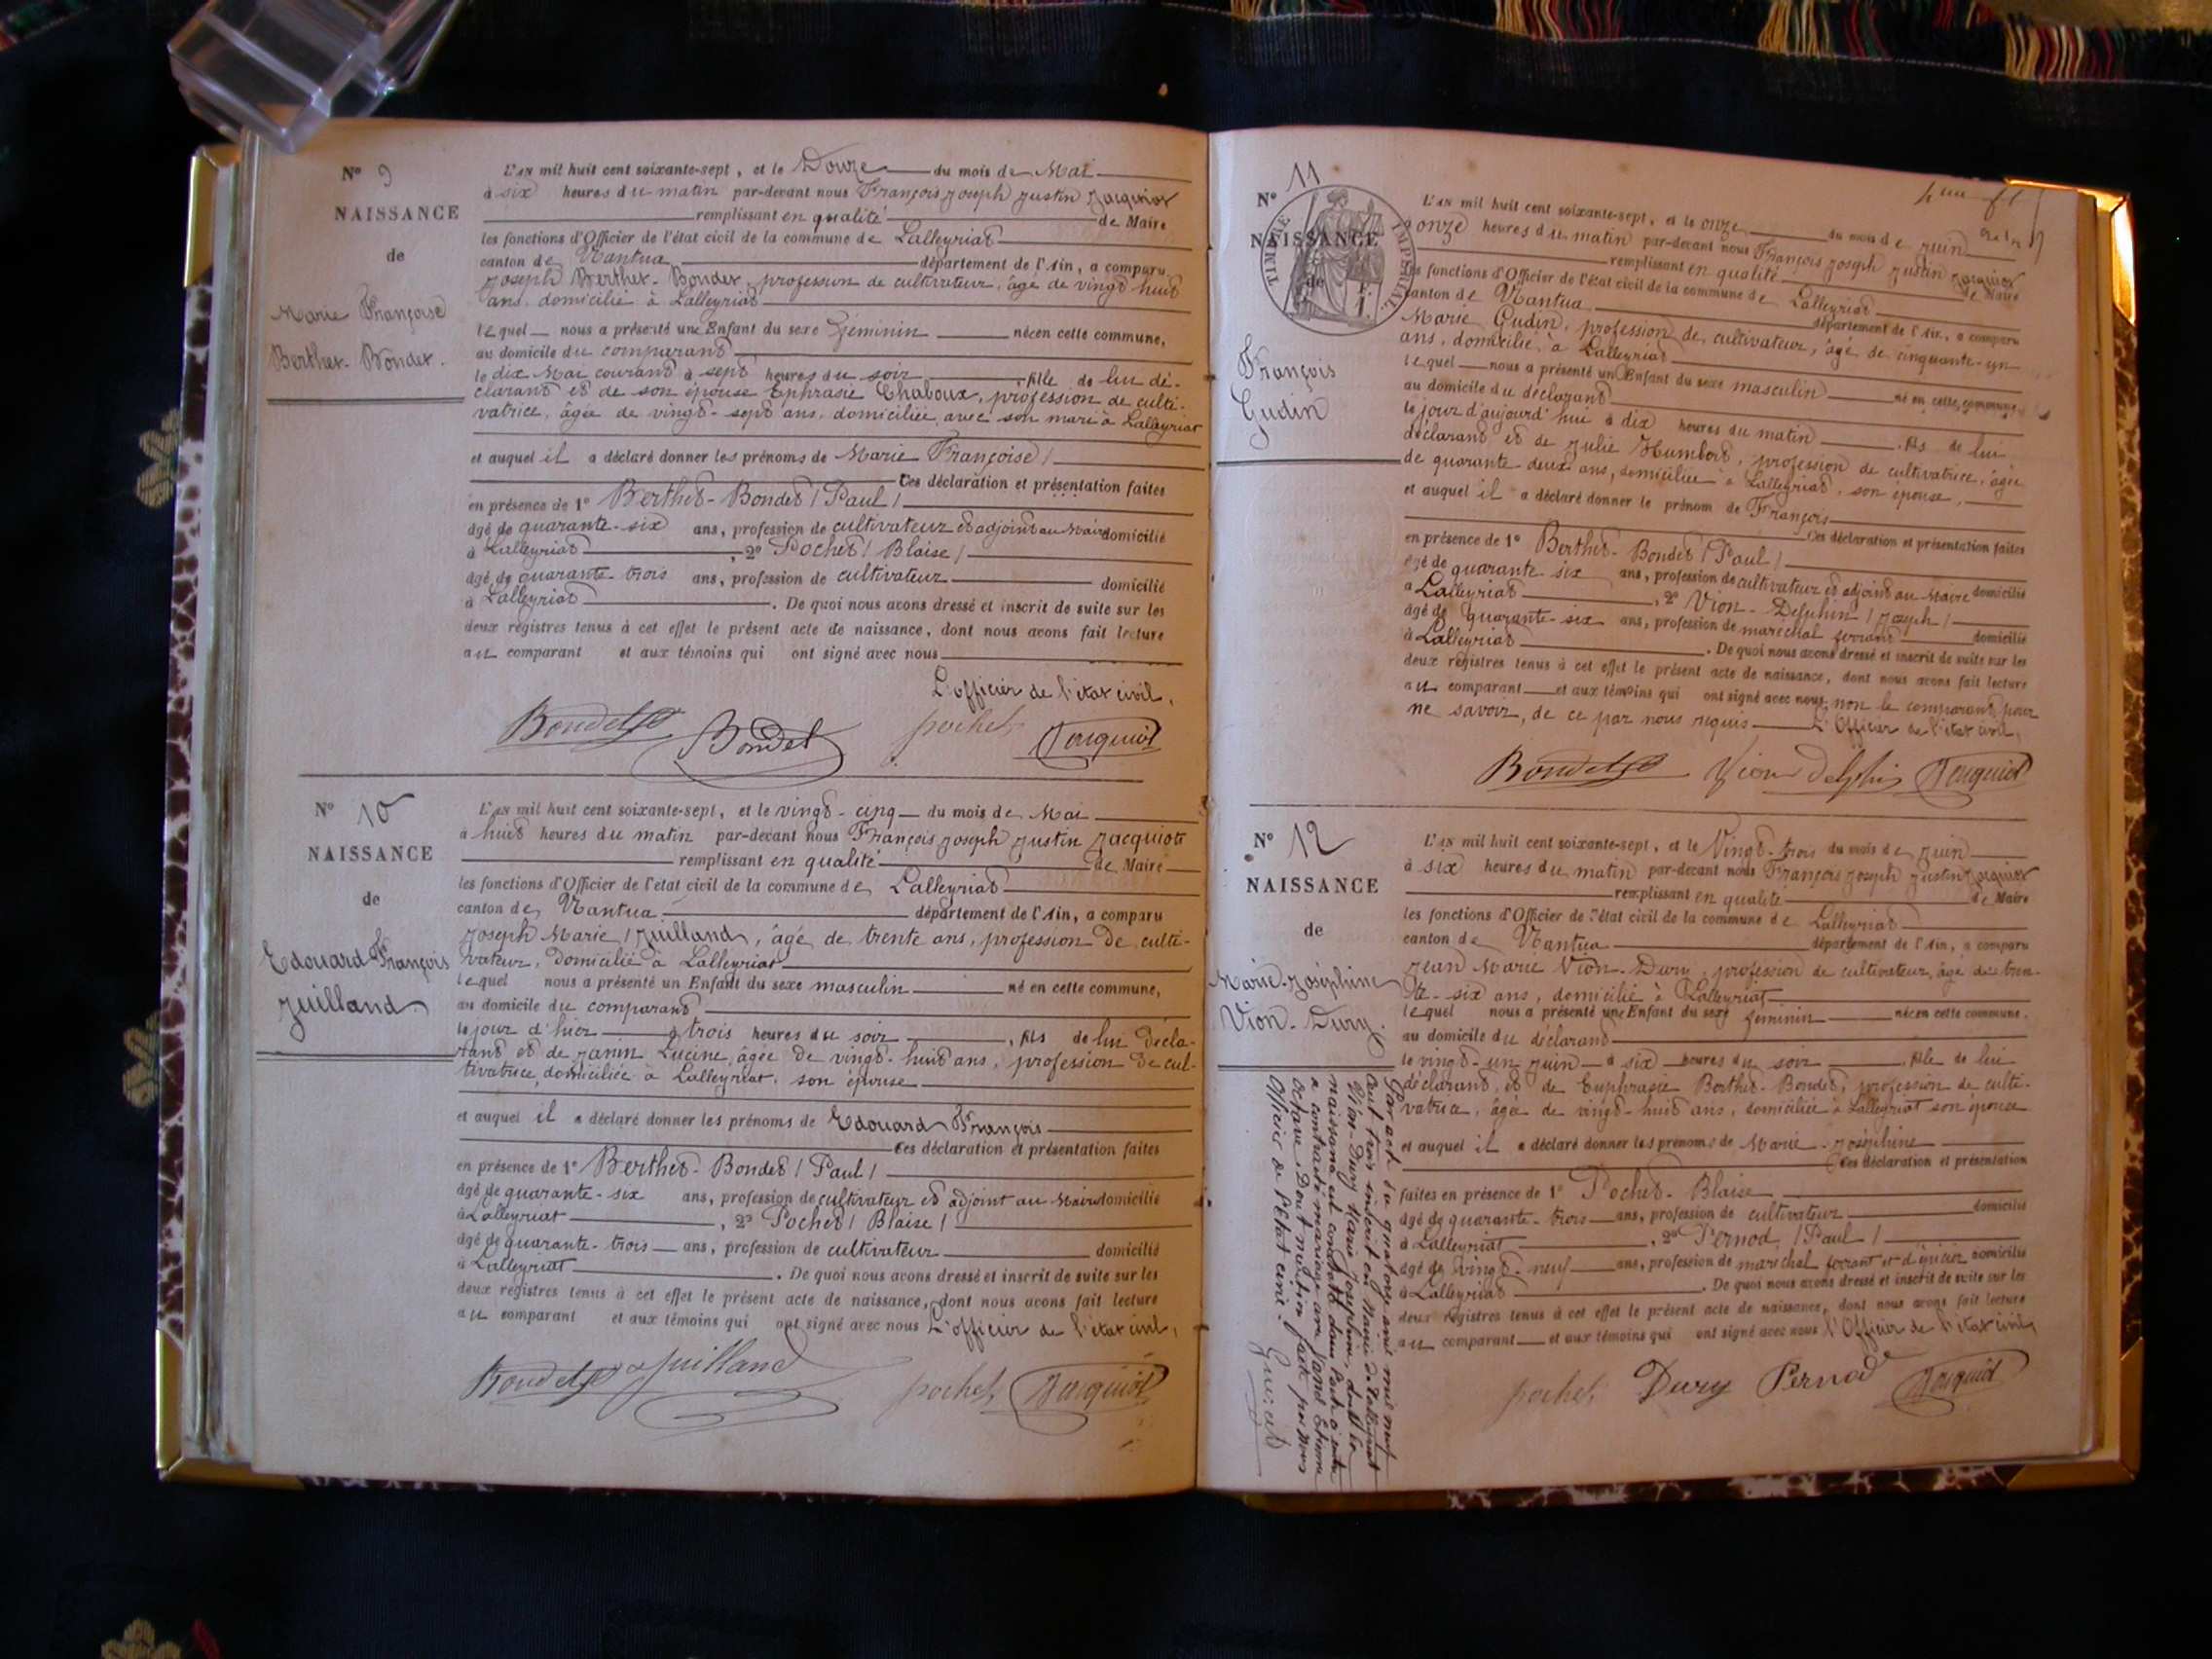 N° 9
NAISSANCE
de
Marie Françoise
Berthet-Bondet.
L'AN mil huit cent soixante-sept, et le Douze du mois de Mai
à six heures du matin par-devant nous François Joseph Justin Jacquiot
remplissant en qualité de Maire
les fonctions d'Officier de l'état civil de la commune de Lalleyriat
canton de Nantua département de l'Ain, a comparu
Joseph Berthet-Bondet, profession de cultivateur, âgé de vingt huit
ans, domicilié à Lalleyriat
lequel nous a présenté une Enfant du sexe féminin née en cette commune,
au domicile du comparant
le dix Mai courant à sept heures du soir, fille de lui dé-
clarant et de son épouse Ephrasie Chaboux, profession de culti-
vatrice, âgée de vingt-sept ans, domiciliée avec son mari à Lalleyriat
et auquel il a déclaré donner les prénoms de Marie Françoise /
Ces déclaration et présentation faites
en présence de 1° Berthet-Bondet / Paul /
âgé de quarante-six ans, profession de cultivateur et adjoint au Maire domicilié
à Lalleyriat, 2° Pochet / Blaise /
âgé de quarante-trois ans, profession de cultivateur domicilié
à Lalleyriat. De quoi nous avons dressé et inscrit de suite sur les
deux registres tenus à cet effet le présent acte de naissance, dont nous avons fait lecture
au comparant et aux témoins qui ont signé avec nous
L'officier de l'état civil,
Bondet Bondet pochet Jacquiot
N° 10
NAISSANCE
de
Edouard François
Juilland
L'AN mil huit cent soixante-sept, et le vingt-cinq du mois de Mai
à huit heures du matin par-devant nous François Joseph Justin Jacquiot
remplissant en qualité de Maire
les fonctions d'Officier de l'état civil de la commune de Lalleyriat
canton de Nantua département de l'Ain, a comparu
Joseph Marie / Juilland, âgé de trente ans, profession de culti-
vateur, domicilié à Lalleyriat
lequel nous a présenté un Enfant du sexe masculin né en cette commune,
au domicile du comparant
le jour d'hier à trois heures du soir, fils de lui décla-
rant et de Janin Lucine, âgée de vingt-huit ans, profession de cul-
tivatrice, domiciliée à Lalleyriat, son épouse
et auquel il a déclaré donner les prénoms de Edouard François
Ces déclaration et présentation faites
en présence de 1° Berthet-Bondet / Paul /
âgé de quarante-six ans, profession de cultivateur et adjoint au Maire domicilié
à Lalleyriat, 2° Pochet / Blaise /
âgé de quarante-trois ans, profession de cultivateur domicilié
à Lalleyriat. De quoi nous avons dressé et inscrit de suite sur les
deux registres tenus à cet effet le présent acte de naissance, dont nous avons fait lecture
au comparant et aux témoins qui ont signé avec nous L'officier de l'état civil,
Bondet Juilland pochet Jacquiot
N° 11
NAISSANCE
de
TIMBRE IMPERIAL
François
Gudin
L'AN mil huit cent soixante-sept, et le onze du mois de juin
à onze heures du matin par-devant nous François Joseph Justin Jacquiot
remplissant en qualité de Maire
les fonctions d'Officier de l'état civil de la commune de Lalleyriat
canton de Nantua département de l'Ain, a comparu
Marie Gudin, profession de cultivateur, âgé de cinquante-un
ans, domicilié à Lalleyriat
lequel nous a présenté un Enfant du sexe masculin né en cette commune
au domicile du déclarant
le jour d'aujourd'hui à dix heures du matin, fils de lui
déclarant et de Julie Humbert, profession de cultivatrice, âgée
de quarante-deux ans, domiciliée à Lalleyriat, son épouse,
et auquel il a déclaré donner le prénom de François
Ces déclaration et présentation faites
en présence de 1° Berthet-Bondet / Paul /
âgé de quarante-six ans, profession de cultivateur et adjoint au Maire domicilié
à Lalleyriat, 2° Vion-Delphin / Joseph /
âgé de quarante-six ans, profession de maréchal ferrant domicilié
à Lalleyriat. De quoi nous avons dressé et inscrit de suite sur les
deux registres tenus à cet effet le présent acte de naissance, dont nous avons fait lecture
au comparant et aux témoins qui ont signé avec nous, non le comparant pour
ne savoir, de ce par nous requis L'Officier de l'état civil,
Bondet Vion delphin Jacquiot
N° 12
NAISSANCE
de
Marie-Joséphine
Vion-Dury.
L'AN mil huit cent soixante-sept, et le Vingt-trois du mois de Juin
à six heures du matin par-devant nous François Joseph Justin Jacquiot
remplissant en qualité de Maire
les fonctions d'Officier de l'état civil de la commune de Lalleyriat
canton de Nantua département de l'Ain, a comparu
Jean Marie Vion-Dury, profession de cultivateur, âgé de tren-
te-six ans, domicilié à Lalleyriat
lequel nous a présenté une Enfant du sexe féminin née en cette commune,
au domicile du déclarant
le vingt-un Juin à six heures du soir, fille de lui
déclarant, et de Euphrasie Berthet-Bondet, profession de culti-
vatrice, âgée de vingt-huit ans, domiciliée à Lalleyriat son épouse
et auquel il a déclaré donner les prénoms de Marie-Joséphine
Ces déclaration et présentation
faites en présence de 1° Pochet-Blaise domicilié
âgé de quarante-trois ans, profession de cultivateur
à Lalleyriat, 2° Pernod / Paul /
âgé de vingt-neuf ans, profession de maréchal ferrant et d'épicier domicilié
à Lalleyriat. De quoi nous avons dressé et inscrit de suite sur les
deux registres tenus à cet effet le présent acte de naissance, dont nous avons fait lecture
au comparant et aux témoins qui ont signé avec nous l'Officier de l'état civil,
pochet Dury Pernod Jacquiot
Par acte du quatorze avril mil neuf
cent trois inscrit en Mairie de Lalleyriat
Vion-Dury Marie Joséphine, dont la
naissance est constatée dans l'acte ci-contre
a contracté mariage avec Etienne
Octave. Dont mention faite par nous
Officier de l'Etat civil.